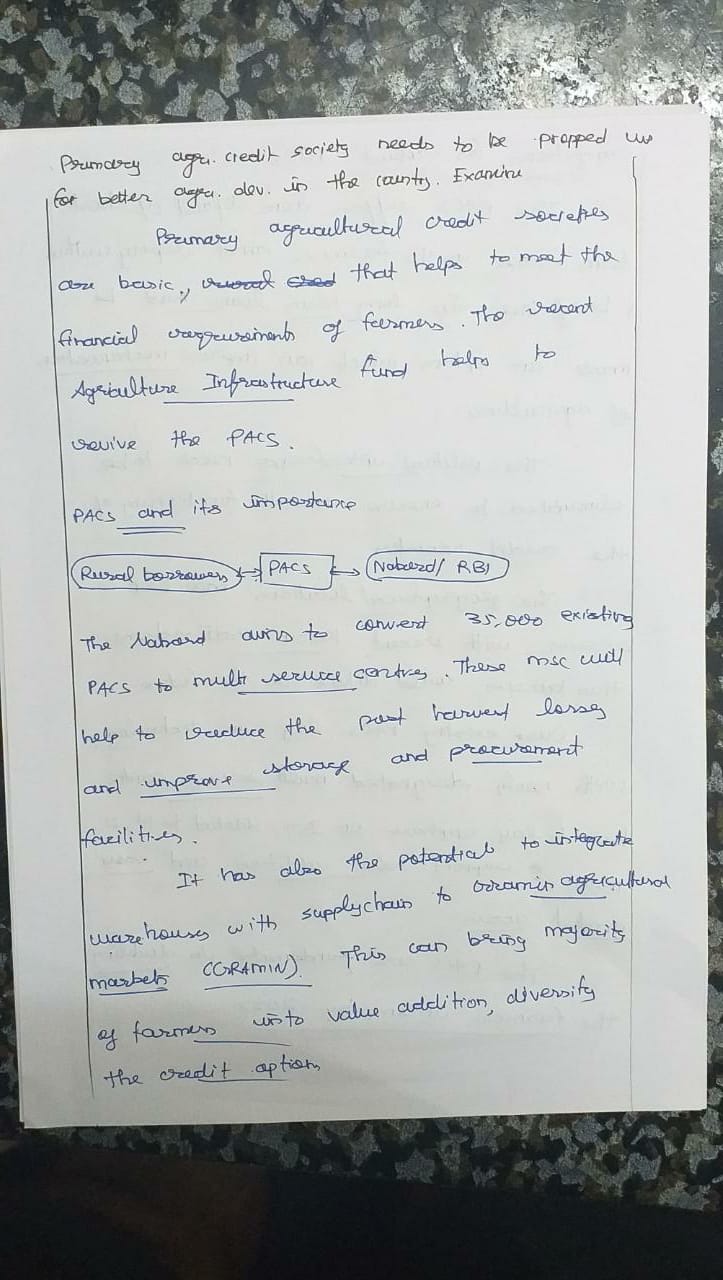 Primary agri. credit society needs to be propped up
for better agri. dev. in the country. Examine
Primary agricultural credit societies
are basic, rural cred that helps to meet the
financial requirements of farmers. The recent
Agriculture Infrastructure fund helps to
revive the PACS.
PACS and its importance
Rural borrowers PACS Nabard/ RBI
The Nabard aims to convert 35,000 existing
PACS to multi service centres. These msc will
help to reduce the post harvest losses
and improve storage and procurement
facilities.
It has also the potential to integrate
warehouses with supplychain to Gramin agricultural
markets (GRAMIN). This can bring majority
of farmers into value addition, diversify
the credit options